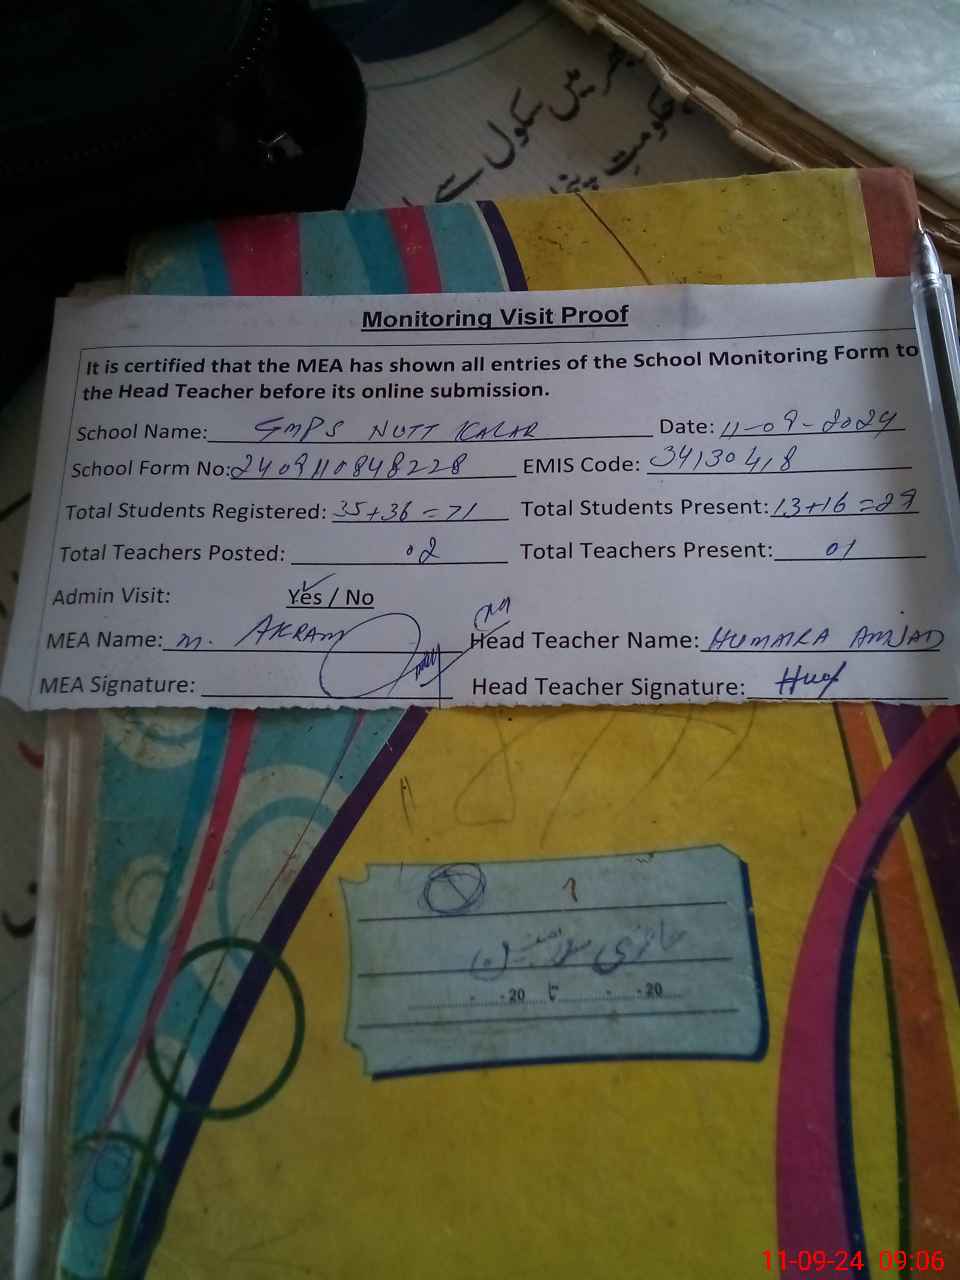 میں سکول سے
حکومت
Monitoring Visit Proof
It is certified that the MEA has shown all entries of the School Monitoring Form to
the Head Teacher before its online submission.
School Name: GMPS NUTT KALAR Date: 11-09-2024
School Form No: 2409110848228 EMIS Code: 34130418
Total Students Registered: 35+36=71 Total Students Present: 13+16=29
Total Teachers Posted: 02 Total Teachers Present: 01
Admin Visit: Yes / No
MEA Name: M. AKRAM Head Teacher Name: HUMAIRA AMJAD
MEA Signature: Head Teacher Signature:
20 تا 20
11-09-24 09:06